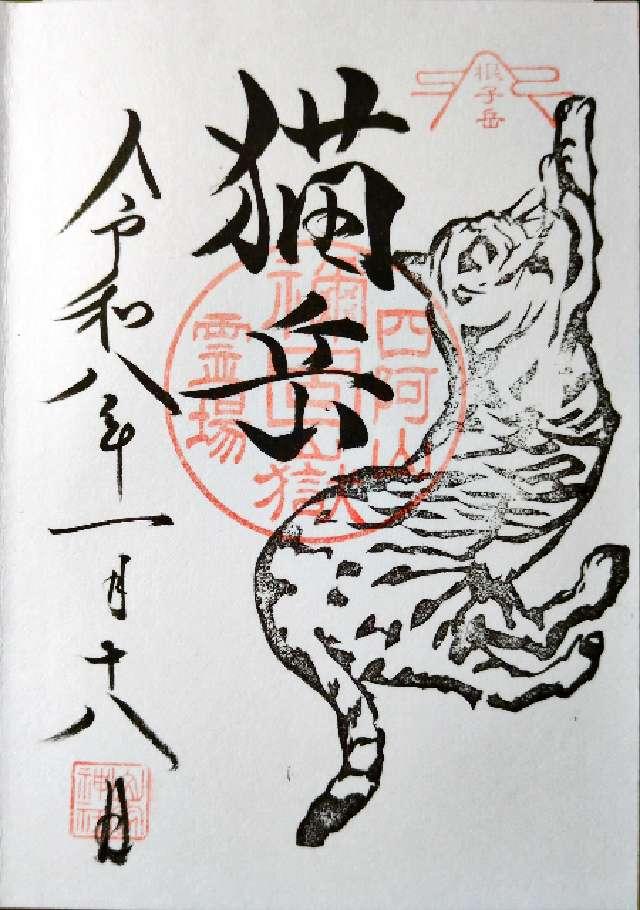 根子岳
猫岳
四阿山
禰固嶽
霊場
令和八年一月十八日